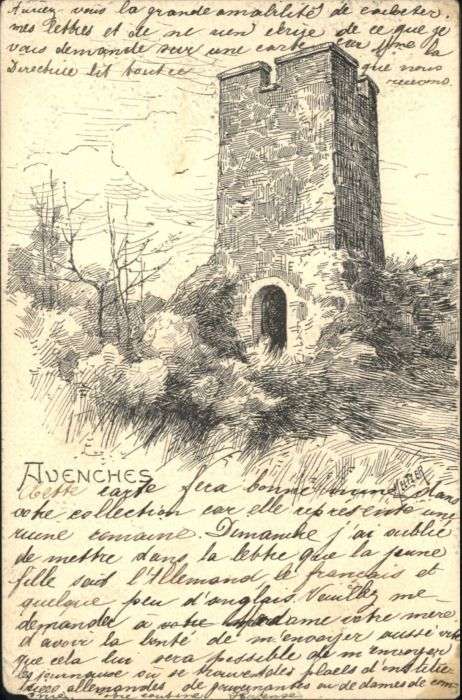 Auriez vous la grande amabilité de cacheter
mes lettres et de ne rien écrire de ce que je
vous demande sur une carte car Mme la
Directrice lit toutes que nous
recevons
AVENCHES
Cette carte fera bonne dans
votre collection car elle représente une
ruine romaine. Dimanche j'ai oublié
de mettre dans la lettre que la jeune
fille sait l'Allemand le français et
quelque peu d'anglais. Veuillez me
demander a votre Madame votre mère
d'avoir la bonté de m'envoyer aussi
que cela lui sera possible de m'envoyer
les journaux ou se trouvent des places d'institu
allemandes de gouvernantes ou de dames de com